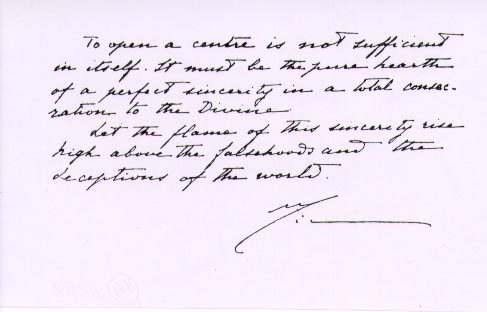 To open a centre is not sufficient
in itself. It must be the pure hearth
of a perfect sincerity in a total consec-
ration to the Divine
Let the flame of this sincerity rise
high above the falsehoods and the
deceptions of the world.